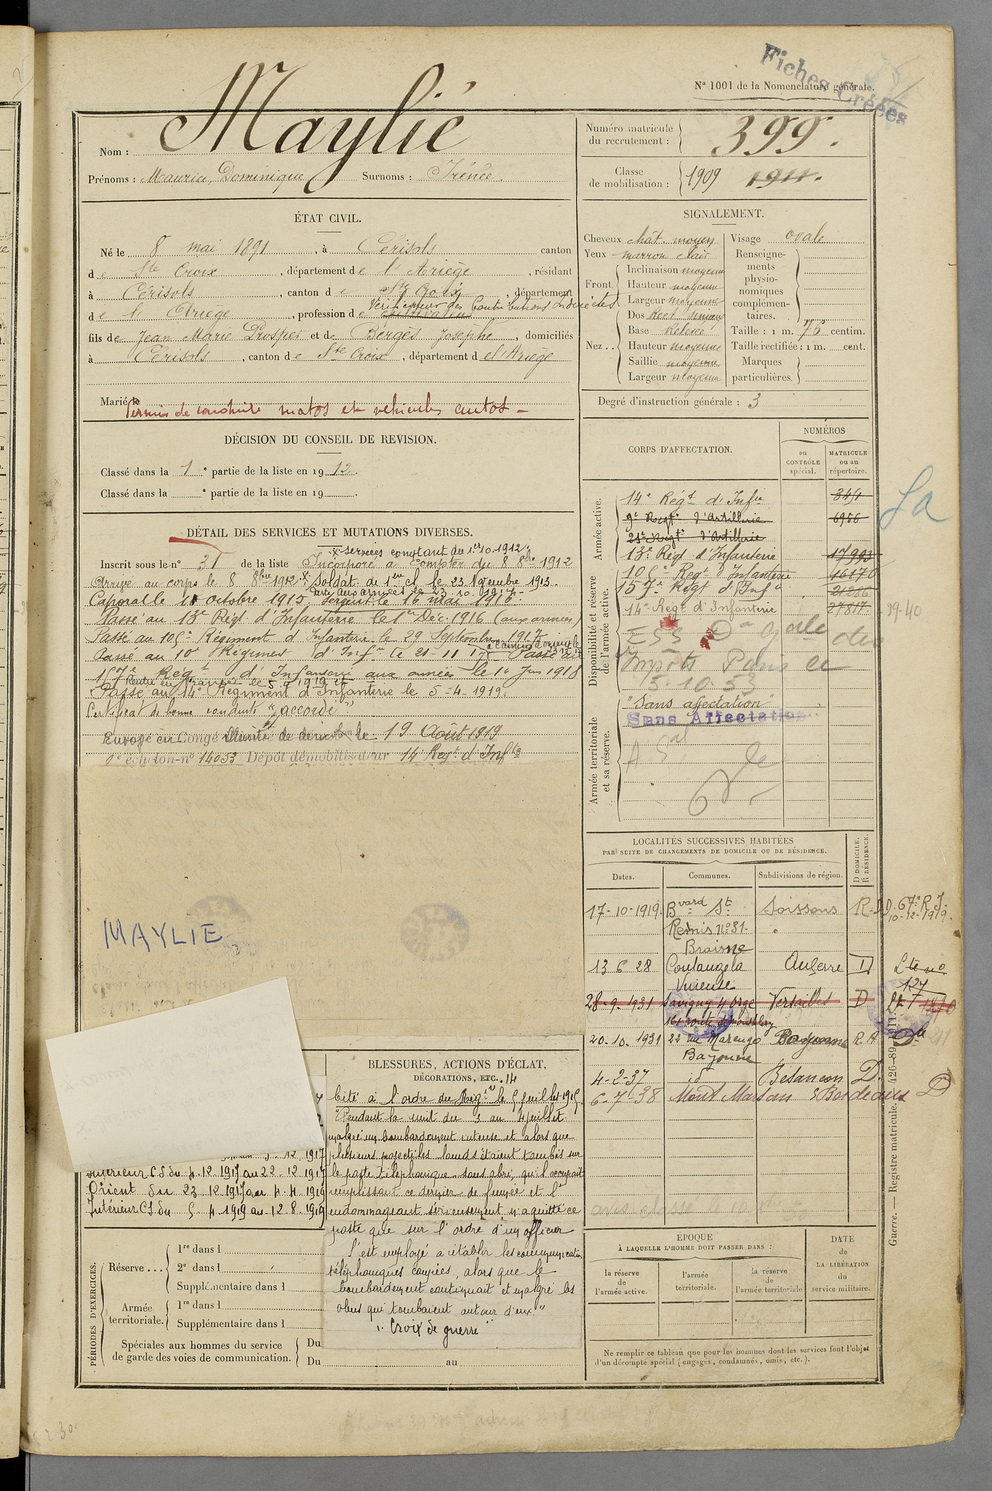 Fiches Créées
N° 1001 de la Nomenclature générale.
Nom : Maylié
Prénoms : Maurice, Dominique Surnoms : Irénée.
Numéro matricule du recrutement : 399.
Classe de mobilisation : 1909 1911.
ÉTAT CIVIL.
Né le 8 mai 1891, à Cérisols canton
de Ste Croix, département de l'Ariège, résidant
à Cérisols, canton de Ste Croix, département
de l'Ariège, profession de Vérificateur des Contributions Indirectes
fils de Jean Marie Prosper et de Bergès Josephe, domiciliés
à Cérisols, canton de Ste Croix, département de l'Ariège
Marié à
Permis de conduire motos et véhicules autos -
DÉCISION DU CONSEIL DE REVISION.
Classé dans la 1e partie de la liste en 1912.
Classé dans la e partie de la liste en 19
DÉTAIL DES SERVICES ET MUTATIONS DIVERSES.
* services comptant du 1er 10-1912
Inscrit sous le n° 31 de la liste Incorporé à compter du 8 8bre 1912
Arrivé au corps le 8 8bre 1912 * Soldat de 1re cl. le 23 Novembre 1913.
Caporal le 11 octobre 1915, Sergent le 16 mai 1916.
Passé au 13e Régt d'Infanterie le 1er Déc. 1916 (aux armées)
Passé au 10e Régiment d'Infanterie le 29 Septembre 1917
Passé au 10e Régiment d'Infie le 21-11-17 Passé au
157e Régt d'Infanterie aux armées le 1er Juin 1918
Passé au 14e Régiment d'Infanterie le 5-4-1919.
Certificat de bonne conduite "accordé"
Envoyé en Congé illimité de démob le 19 Août 1919
9e échelon-n° 14033 Dépôt démobilisateur 14e Régt d'Infie
MAYLIE
SIGNALEMENT.
Cheveux chât. moyen
Yeux marron clair
Front Inclinaison moyenne
Hauteur moyenne
Largeur moyenne
Nez Dos
Base relevée
Hauteur moyenne
Saillie moyenne
Largeur moyenne
Visage ovale
Renseignements physionomiques complémentaires.
Taille : 1 m. 76 centim.
Taille rectifiée : 1 m. cent.
Marques particulières.
Degré d'instruction générale : 3
CORPS D'AFFECTATION.
NUMÉROS
au CONTRÔLE spécial.
MATRICULE ou au répertoire.
Armée active.
Disponibilité et réserve de l'armée active.
Armée territoriale et sa réserve.
14e Régt d'Infie
9e Régt d'Artillerie 6966
21e Régt d'Artillerie
13e Régt d'Infanterie 17993
10e Régt d'Infanterie 16170
157e Régt d'Infie 21236
14e Régt d'Infanterie 27817
39-40
Impôts Paris le
3.10.53
"Sans affectation"
Sans Affectation
LOCALITÉS SUCCESSIVES HABITÉES
PAR SUITE DE CHANGEMENTS DE DOMICILE OU DE RÉSIDENCE.
Dates. Communes. Subdivisions de région. D DOMICILE. R RÉSIDENCE.
17-10-1919 Bvard St Remis n° 31 Braisne Soissons R
13 6 28 Coulanges la Vineuse Auxerre D
28-9-1931 Savigny s/ Orge Versailles D
20.10.1931 22 rue Marengo Bayonne Bayonne R.A.
4-2-37 id Besançon D.
6-7-38 Mont Marsan Bordeaux D
BLESSURES, ACTIONS D'ÉCLAT,
DÉCORATIONS, ETC.
Cité à l'ordre du Régt le 5 Juillet 1915
"Pendant la nuit du 3 au 4 juillet
malgré un bombardement intense et alors que
plusieurs projectiles lourds étaient tombés sur
le poste téléphonique sous abri, qu'il occupait
remplissant ce dernier de fumée et l'
endommageant sérieusement n'a quitté ce
poste que sur l'ordre d'un officier
S'est employé à rétablir les communications
téléphoniques coupées, alors que le
bombardement continuait et malgré les
obus qui tombaient autour d'eux"
"Croix de guerre"
Intérieur CS du 4.12 1917 au 22.12 1917
Orient du 23 12 1917 au 4 4 1919
Intérieur CS du 5 4 1919 au 12.8.1919
PÉRIODES D'EXERCICES.
Réserve 1re dans l
2e dans l
Supplémentaire dans l
Armée territoriale. 1re dans l
Supplémentaire dans l
Spéciales aux hommes du service de garde des voies de communication. Du
Du au
ÉPOQUE
À LAQUELLE L'HOMME DOIT PASSER DANS :
la réserve de l'armée active.
l'armée territoriale.
la réserve de l'armée territoriale
DATE de LA LIBÉRATION du service militaire.
Ne remplir ce tableau que pour les hommes dont les services font l'objet
d'un décompte spécial (engagés, condamnés, omis, etc.).
Guerre. — Registre matricule. 426-89